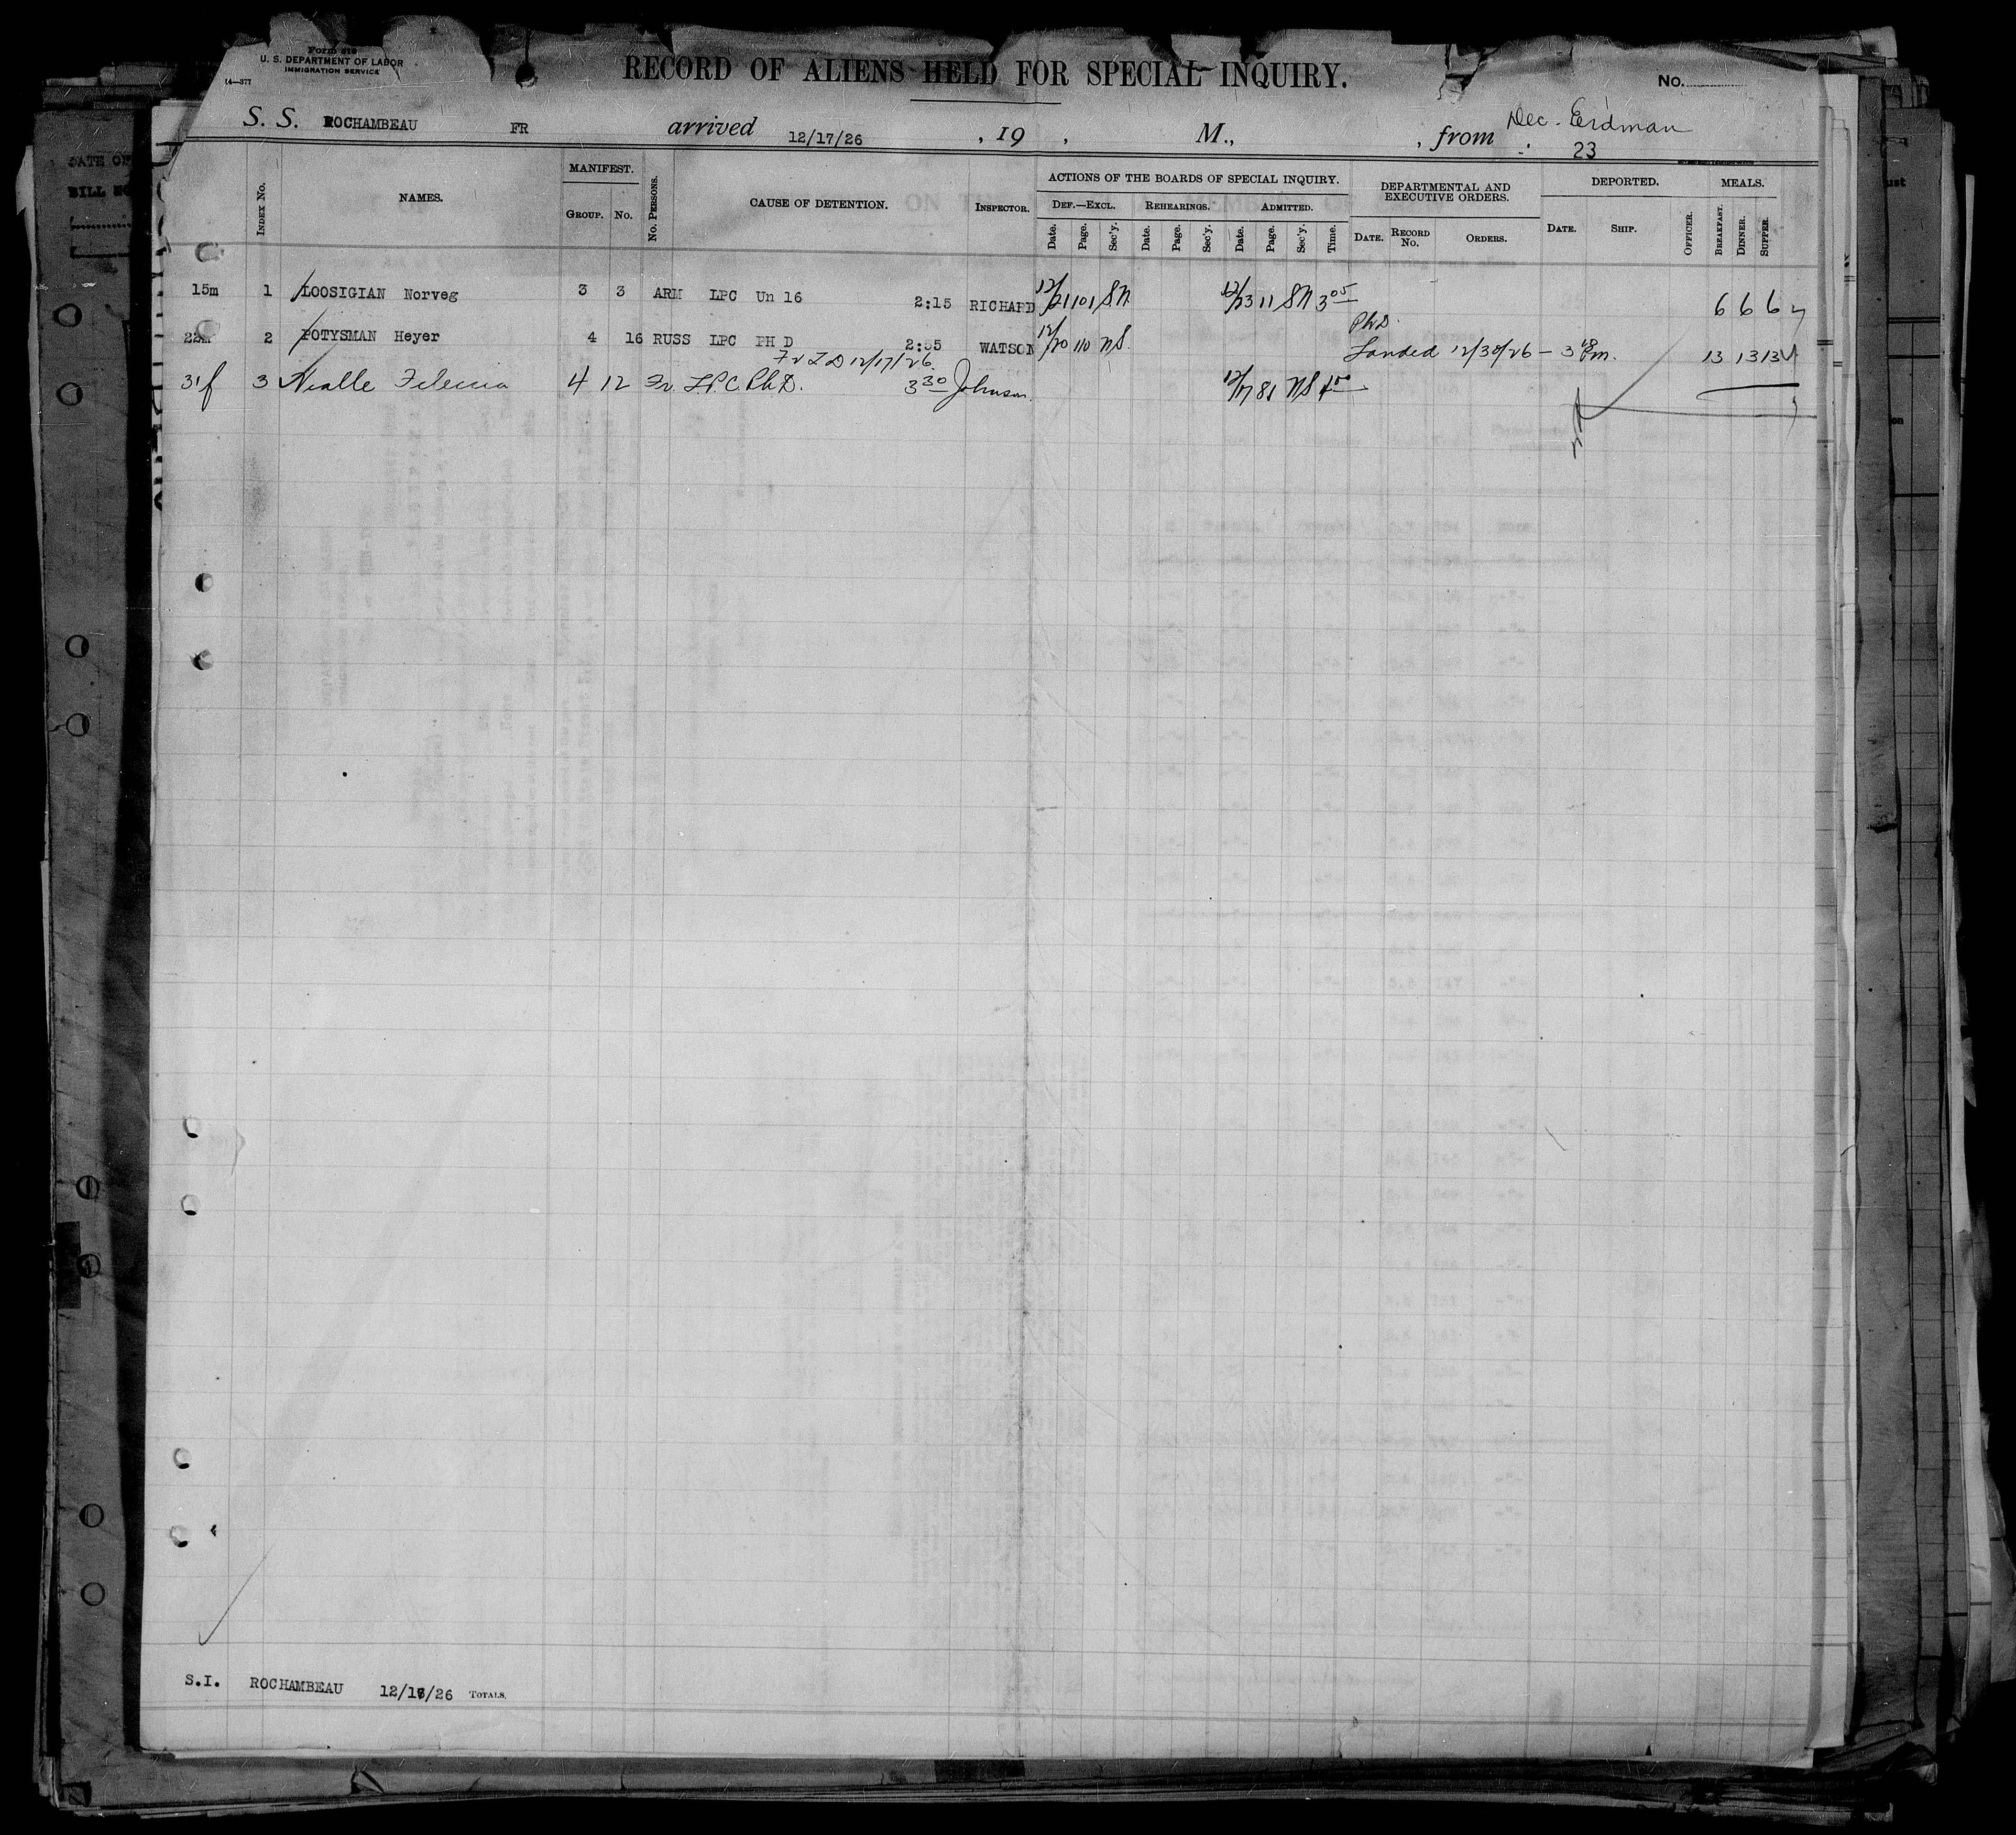 Form 519
U. S. DEPARTMENT OF LABOR
IMMIGRATION SERVICE
14—377
RECORD OF ALIENS HELD FOR SPECIAL INQUIRY.
No.
S. S. ROCHAMBEAU FR arrived 12/17/26 , 19 , M., , from Dec. Erdman
23
INDEX No. NAMES. MANIFEST. GROUP. No. No. PERSONS. CAUSE OF DETENTION. INSPECTOR. ACTIONS OF THE BOARDS OF SPECIAL INQUIRY. DEPARTMENTAL AND EXECUTIVE ORDERS. DEPORTED. MEALS.
DEF.—EXCL. REHEARINGS. ADMITTED.
Date. Page. Sec'y. Date. Page. Sec'y. Date. Page. Sec'y. Time. DATE. RECORD No. ORDERS. DATE. SHIP. OFFICER. BREAKFAST. DINNER. SUPPER.
15m 1 LOOSIGIAN Norveg 3 3 ARM LPC Un 16 2:15 RICHARD 12/21 101 SN 12/23 11 SN 3 05 6 6 6
PhD.
22m 2 POTYSMAN Heyer 4 16 RUSS LPC PH D 2:55 WATSON 12/20 110 NS. Landed 12/30/26 — 3 18 Pm. 13 13 13
12/17/26
31f 3 4 12 Fr. L.P.C. Ph.D. 3 30 Johnson. 12/17 81 NS
S.I. ROCHAMBEAU 12/18/26 TOTALS.
DATE OF
BILL NO